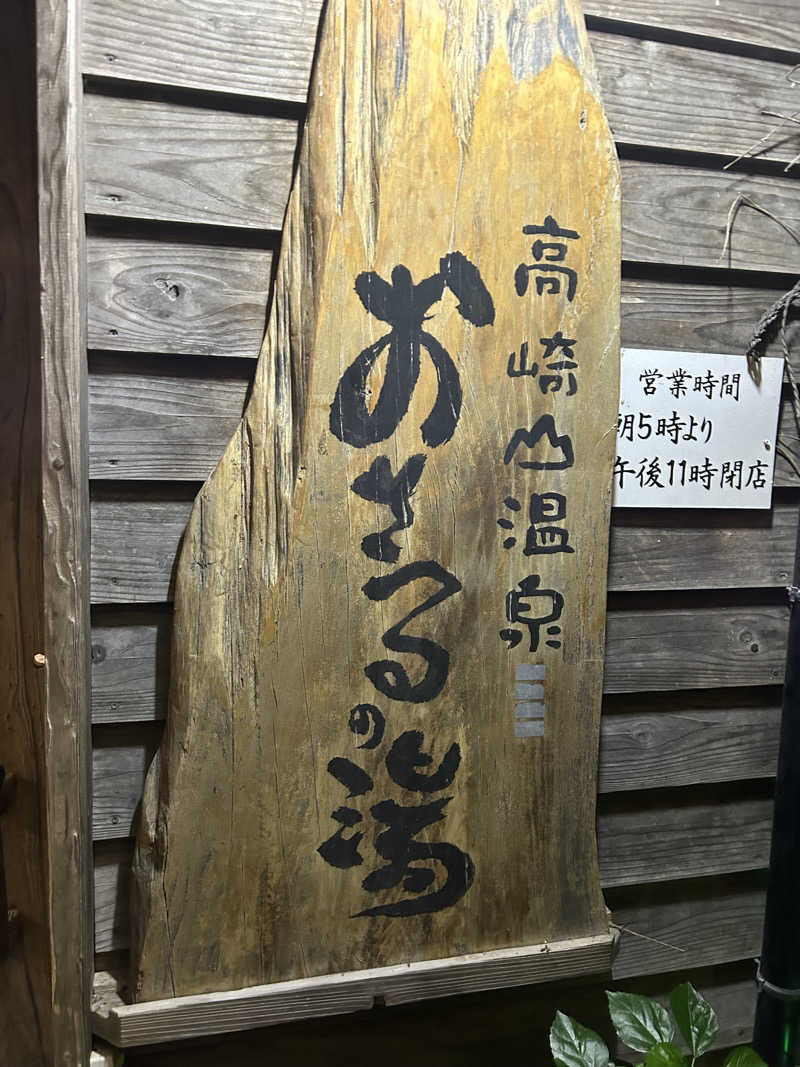 高崎山温泉
おさるの湯
営業時間
朝5時より
午後11時閉店